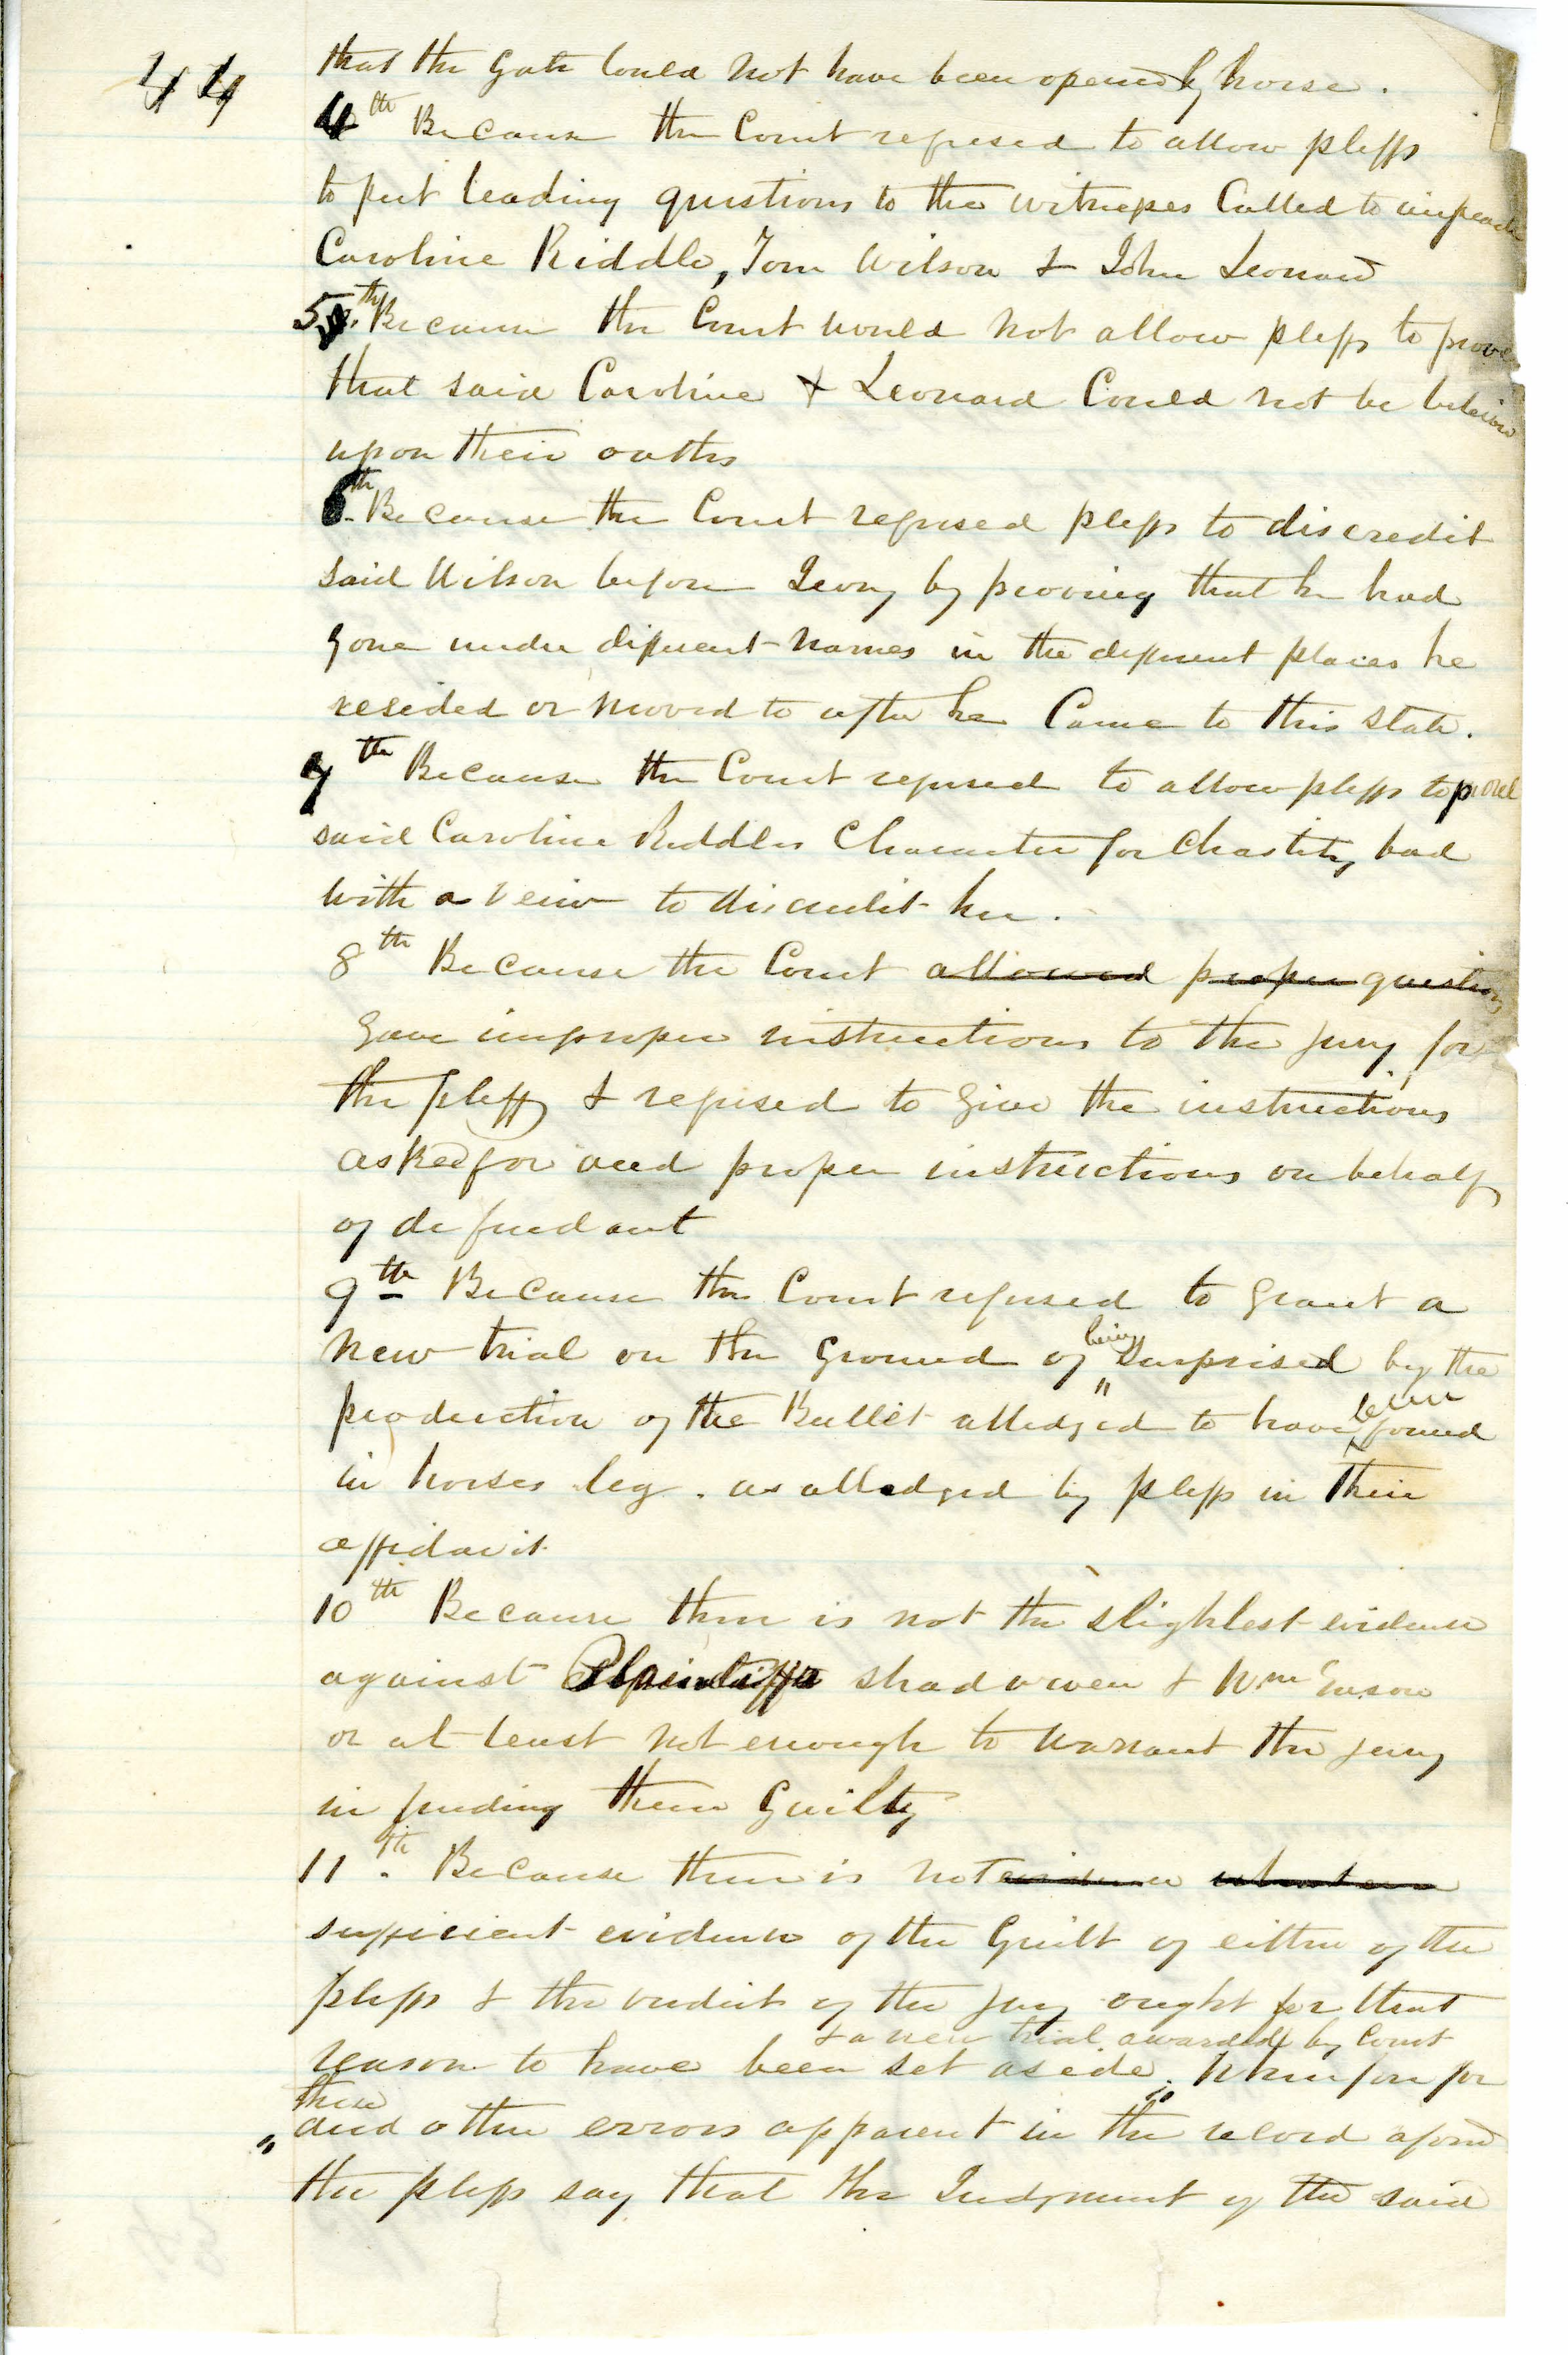 44
that the Gate Could not have been opened by horse.
4th Because the Court refused to allow plffs
to put leading questions to the witnesses Called to impeach
Caroline Riddle, Tom Wilson & John Leonard
5th Because the Court would not allow plffs to prove
that said Caroline & Leonard Could not be beleived
upon their oaths
6th Because the Court refused plffs to discredit
said Wilson before Jury by prooving that he had
gone under different names in the different places he
resided or moved to after he Came to this state.
7th Because the Court refused to allow plffs to prove
said Caroline Riddles Character for Chastity bad
with a veiw to discredit her.
8th Because the Court allowed proper questions
Gave improper instructions to the jury for
the plffs & refused to Give the instructions
asked for and proper instructions on behalf
of defendant
9th Because the Court refused to Grant a
New trial on the Ground of being surprised by the
production of the Bullet alledged to have been found
in horses leg. as alledged by plffs in their
affidavit
10th Because there is not the slightest evidence
against Plaintiffs Shadowen & Wm
or at least not enough to warrant the jury
in finding them Guilty
11th. Because there is not evidence
sufficient evidence of the Guilt of either of the
plffs & the verdict of the jury ought for that
& a new trial awarded by Court
reason to have been set aside. Wherefore for
these
and other errors apparent in the record aforsd
the plffs say that the Judgment of the said